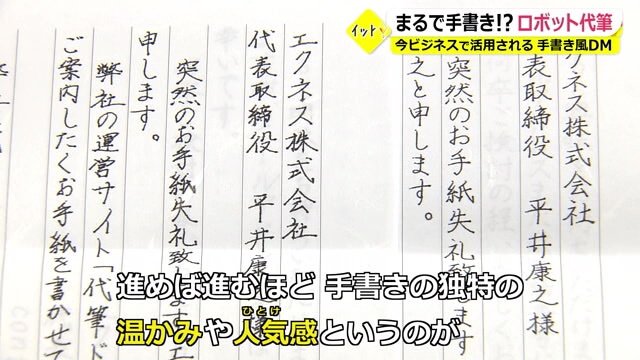 イット!
まるで手書き!? ロボット代筆
今ビジネスで活用される 手書き風DM
クネス株式会社
表取締役 平井康之様
突然のお手紙失礼致
之と申します。
エクネス株式会社
代表取締役 平井康
突然のお手紙失礼致します。エ
申します。
弊社の運営サイト「代筆ド
ご案内したくお手紙を書かせて
進めば進むほど 手書きの独特の
ひとけ
温かみや人気感というのが